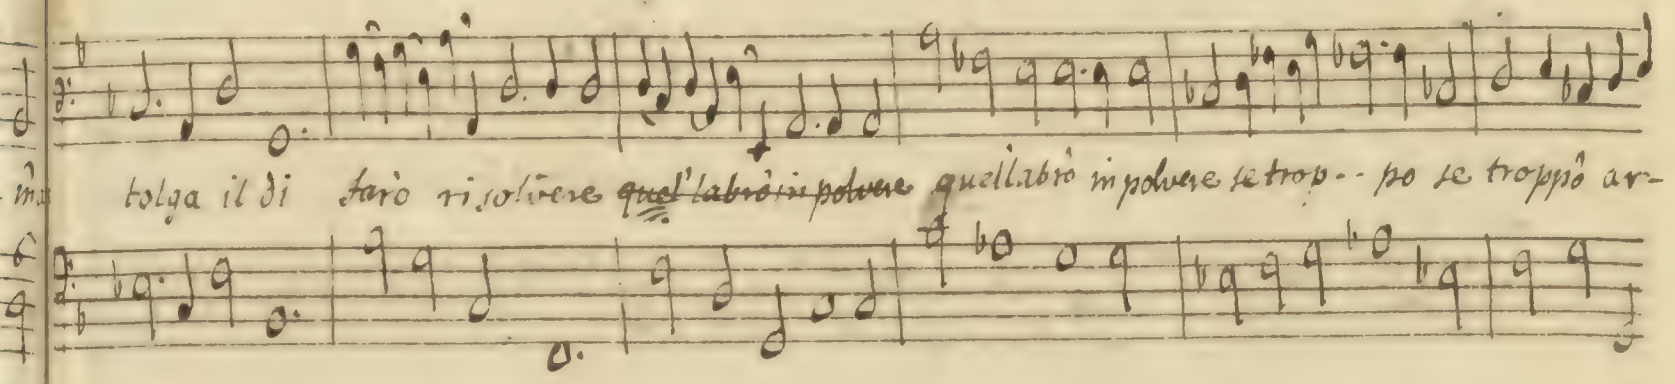 tolga il di farò risolvere quel labro in polvere quel labro in polvere se trop-- po se troppo ar-